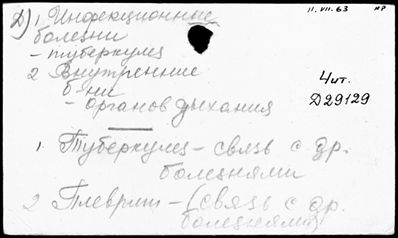 11.VII.63 нр
Д) 1. Инфекционные
болезни
- туберкулез
2 Внутренние
б-ни
- органов дыхания
Чит.
Д29129
1. Туберкулез - связь с др.
болезнями
2 Плеврит - (связь с др.
болезнями)